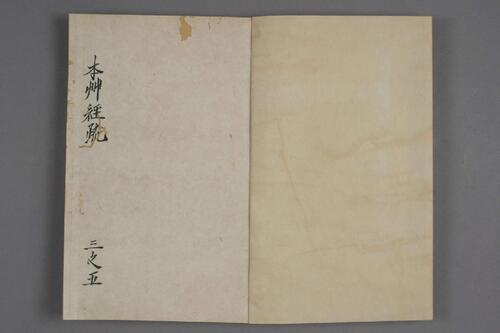 本艸經疏
三之五